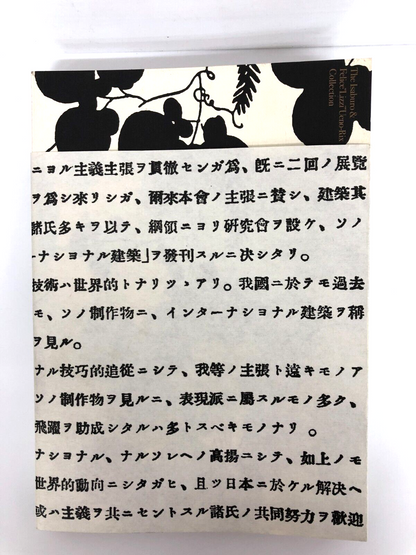 The Isaburo &
Felice "Lizzi" Ueno-Rix
Collection
ニヨル主義主張ヲ貫徹センガ爲、既ニ二回ノ展覽
ヲ爲シ來リシガ、爾來本會ノ主張ニ賛シ、建築其
諸氏多キヲ以テ、綱領ニヨリ硏究會ヲ設ケ、ソノ
ーナシヨナル建築」ヲ發刊スルニ决シタリ。
技術ハ世界的トナリツヽアリ。我國ニ於テモ過去
モ、ソノ制作物ニ、インターナシヨナル建築ヲ稱
ヲ見ル。
ナル技巧的追從ニシテ、我等ノ主張ト遠キモノア
ソノ制作物ヲ見ルニ、表現派ニ屬スルモノ多ク、
飛躍ヲ助成シタルハ多トスベキモノナリ 。
ナシヨナル、ナルソレヘノ高揚ニシテ、如上ノモ
世界的動向ニシタガヒ、且ツ日本ニ於ケル解决ヘ
或ハ主義ヲ共ニセントスル諸氏ノ共同努力ヲ歡迎